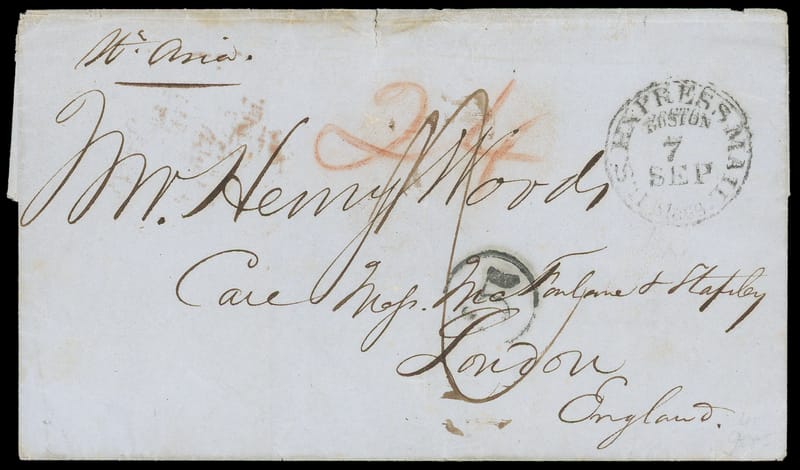 Str Asia.
24
U.S. EXPRESS MAIL
BOSTON
7
SEP
Mass.
Mr. Henry Woods
Care Messr. McFarlane &
London
England.